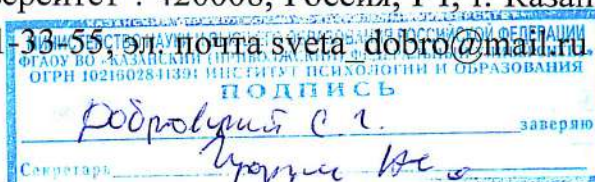 ерситет". 420008, Россия, РТ, г. Казан
-33-55, эл. почта sveta_dobro@mail.ru
МИНИСТЕРСТВО НАУКИ И ВЫСШЕГО ОБРАЗОВАНИЯ РОССИЙСКОЙ ФЕДЕРАЦИИ
ФГАОУ ВО «КАЗАНСКИЙ (ПРИВОЛЖСКИЙ) ФЕДЕРАЛЬНЫЙ
ОГРН 1021602841391 ИНСТИТУТ ПСИХОЛОГИИ И ОБРАЗОВАНИЯ
ПОДПИСЬ
С. Г. заверяю
Секретарь